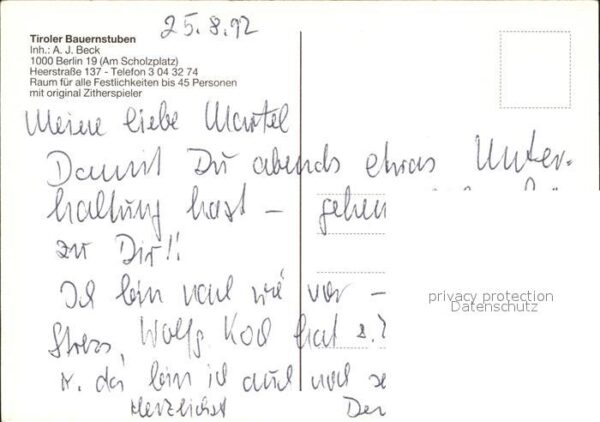 25.8.92
Tiroler Bauernstuben
Inh.: A. J. Beck
1000 Berlin 19 (Am Scholzplatz)
Heerstraße 137 - Telefon 3 04 32 74
Raum für alle Festlichkeiten bis 45 Personen
mit original Zitherspieler
Meine liebe Martel
Damit Du abends etwas Unter-
haltung hast – gehen
zu Dir!!
Ich bin nach wie vor –
Stress, Wolfg. Kod hat
da bin ich auch noch
Herzlichst Der
privacy protection
Datenschutz